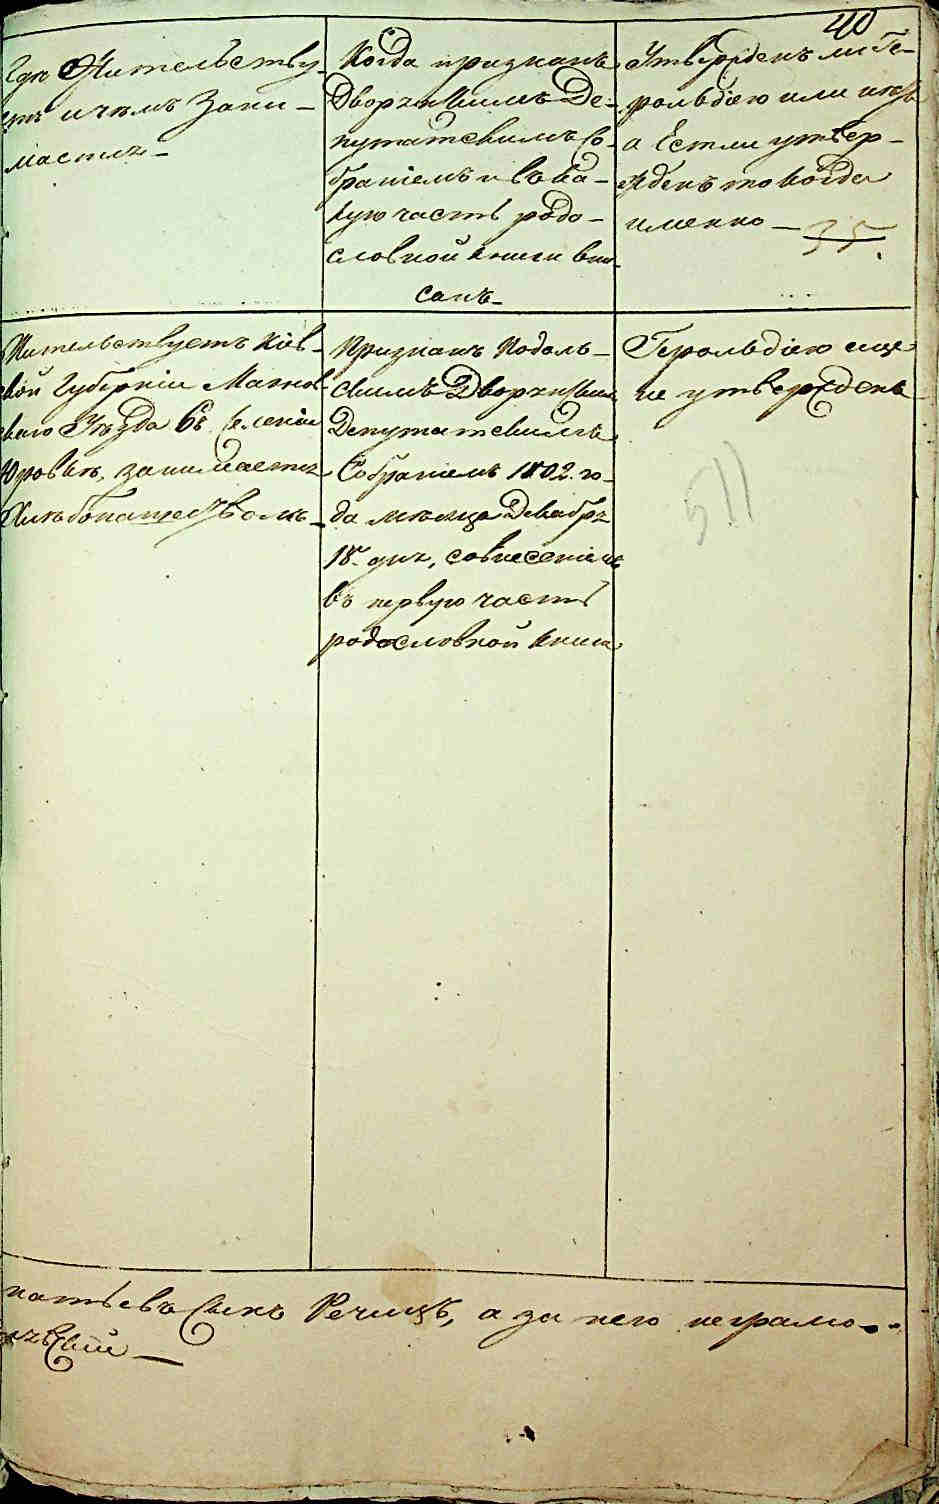 40
Где Жительству-
етъ и чемъ Зани-
мается
Когда признанъ
Дворянскимъ Де-
путатскимъ Со-
браніемъ и въ ка-
кую часть родо-
словной книги впи-
санъ
Утвержденъ ли Ге-
рольдіею или нѣтъ
а Естли утвер-
жденъ то когда
именно
35.
Жительствуетъ Кіев-
ской Губерніи Махнов-
скаго Уѣзда въ Селеніи
занимается
Хлѣбопашествомъ
Признанъ Подоль-
скимъ Дворянскимъ
Депутатскимъ
Собраніемъ 1802. го-
да месяца Декабря
18. дня, совнесеніемъ
въ первую часть
родословной книги
Герольдіею еще
не утвержденъ
511
натьевъ Сынъ Речицъ, а за него неграмо-